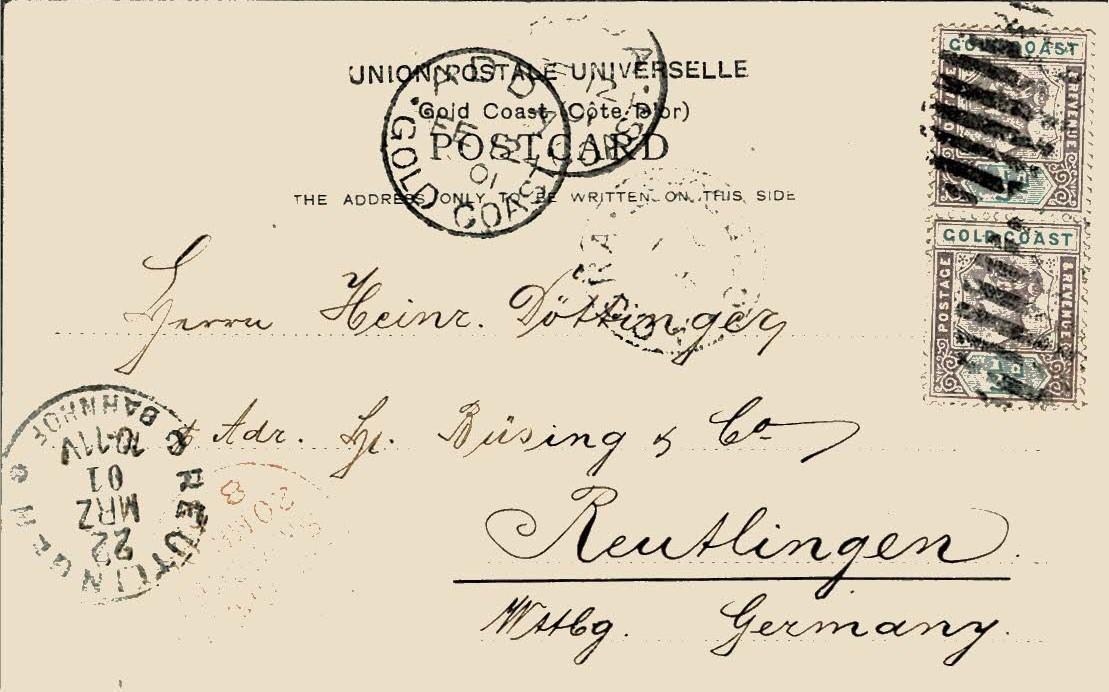 UNION POSTALE UNIVERSELLE
Gold Coast (Côte D'or)
POSTCARD
THE ADDRESS ONLY TO BE WRITTEN ON THIS SIDE
ADDA
FE
01
GOLD COAST
GOLD COAST
REVENUE
GOLD COAST
POSTAGE & REVENUE
Herrn Heinr. Döttinger,
Adr. Hr. Büsing & Co
Reutlingen
Wttbg. Germany.
REUTLINGEN
22
MRZ
01
10-11V
C BAHNHOF